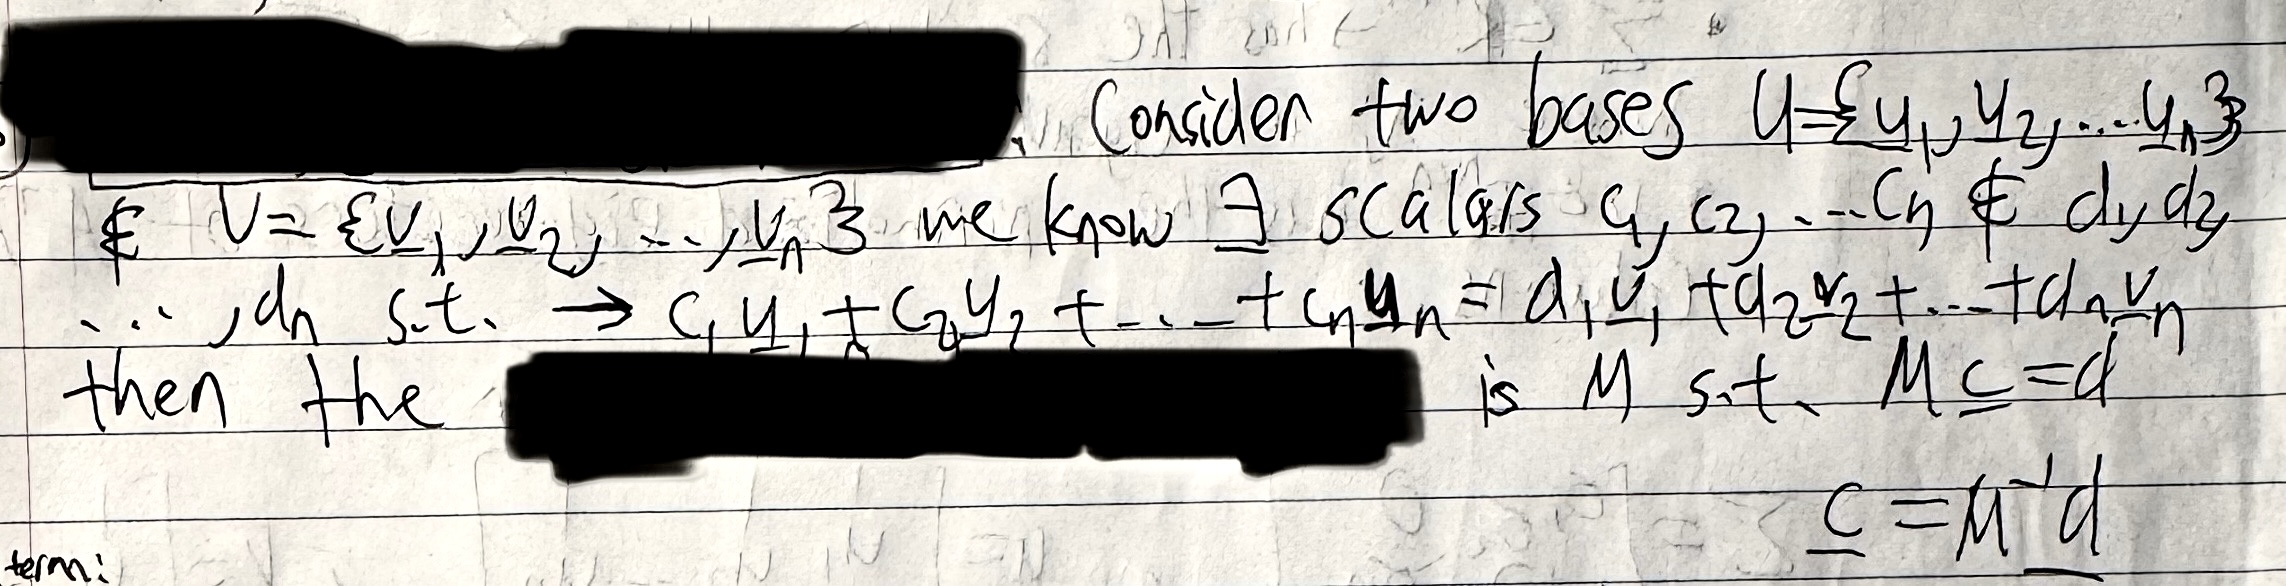 . Consider two bases U={u₁, u₂, ... uₙ}
& V = {v₁, v₂, ..., vₙ} we know ∃ scalars c₁, c₂, ... cₙ & d₁, d₂,
..., dₙ s.t. → c₁u₁ + c₂u₂ + ... + cₙuₙ = d₁v₁ + d₂v₂ + ... + dₙvₙ
then the is M s.t. Mc = d
c = M⁻¹d
term: